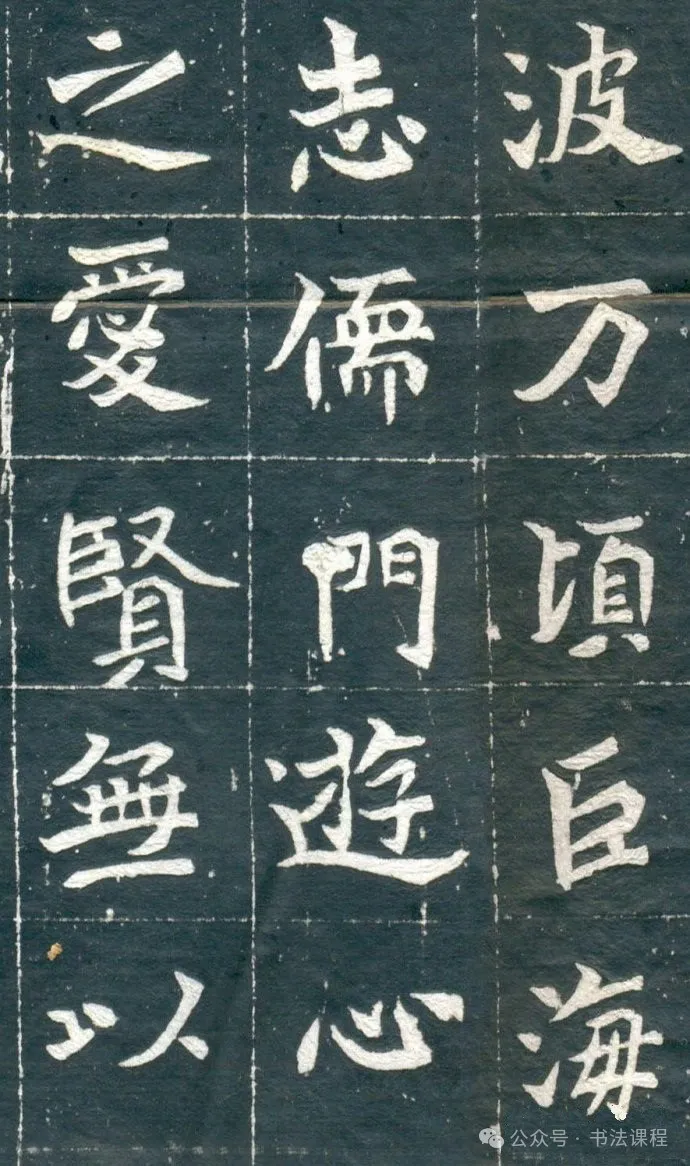 波万頃巨海
志儒門遊心
之愛賢無以
公众号·书法课程